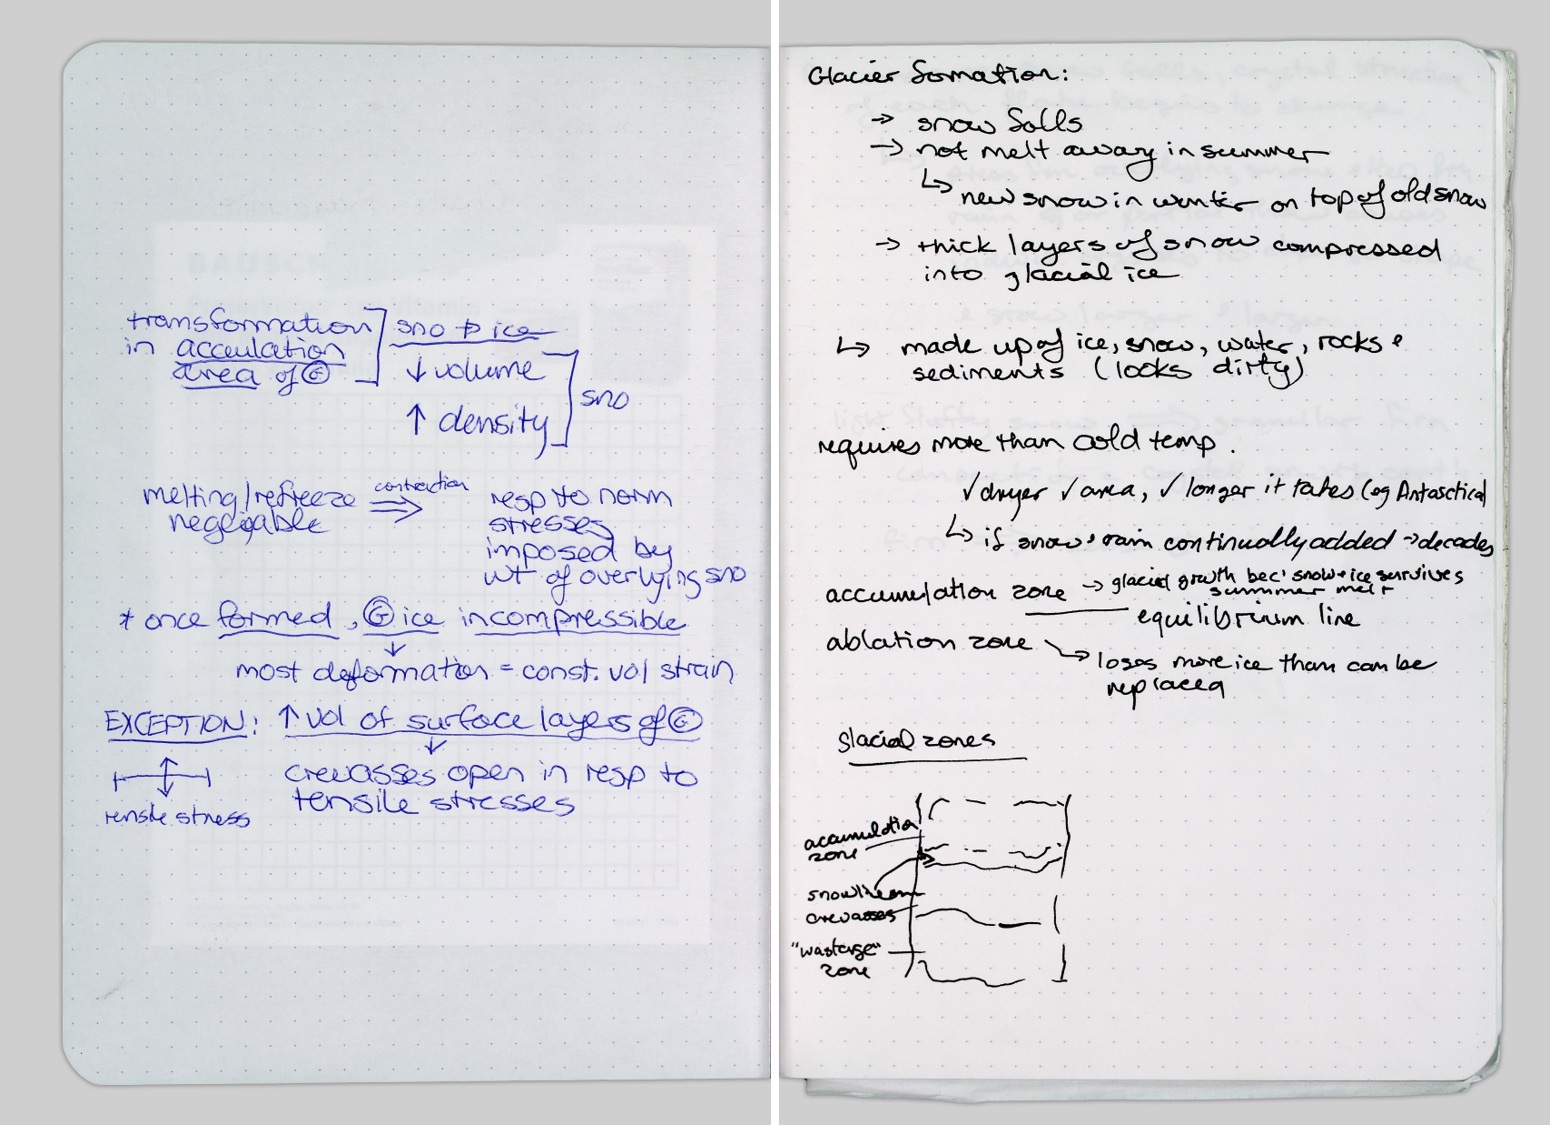 transformation
in acculation
area of Ⓖ
sno → ice
↓ volume
↑ density
sno
melting/refreeze
negligable
contraction
resp to norm
stresses
imposed by
wt of overlying sno
* once formed, Ⓖ ice incompressible
most deformation = const. vol strain
EXCEPTION: ↑ vol of surface layers of Ⓖ
crevasses open in resp to
tensile stresses
tensile stress
Glacier formation:
→ snow falls
→ not melt away in summer
↳ new snow in winter on top of old snow
→ thick layers of snow compressed
into glacial ice
↳ made up of ice, snow, water, rocks &
sediments (looks dirty)
requires more than cold temp.
√ dryer √ area, √ longer it takes (eg Antarctica)
↳ if snow & rain continually added → decades
accumulation zone → glacial growth bec' snow + ice survives
summer melt
equilibrium line
ablation zone
loses more ice than can be
replaced
glacial zones
accumulation
zone
crevasses
"wastage"
zone